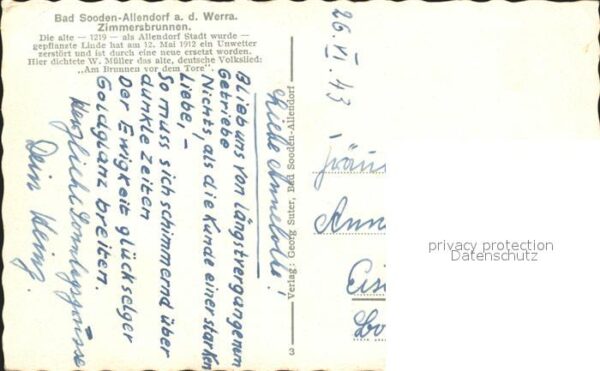 Bad Sooden-Allendorf a. d. Werra.
Zimmersbrunnen.
Die alte — 1219 — als Allendorf Stadt wurde —
gepflanzte Linde hat am 12. Mai 1912 ein Unwetter
zerstört und ist durch eine neue ersetzt worden.
Hier dichtete W. Müller das alte, deutsche Volkslied:
„Am Brunnen vor dem Tore".
26. VI. 43
Liebe Annelotte!
Blieb uns von längstvergangenem
Getriebe
Nichts, als die Kunde einer starken
Liebe, –
So muss sich schimmernd über
dunkle Zeiten
Der Ewigkeit glückselger
Goldglanz breiten.
Herzliche Sonntagsgrüsse
Dein Heinz.
Verlag: Georg Suter, Bad Sooden-Allendorf
3
Fräu
Ann
Eis
privacy protection
Datenschutz